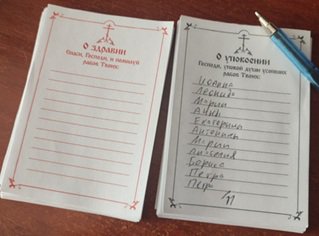 О здравии
Спаси, Господи, и помилуй
рабов Твоих:
О упокоении
Господи, упокой души усопших
рабов Твоих:
Иоанна
Леонида
Марии
Анны
Екатерины
Антонины
Марии
Бориса
Петра
Петра
/11